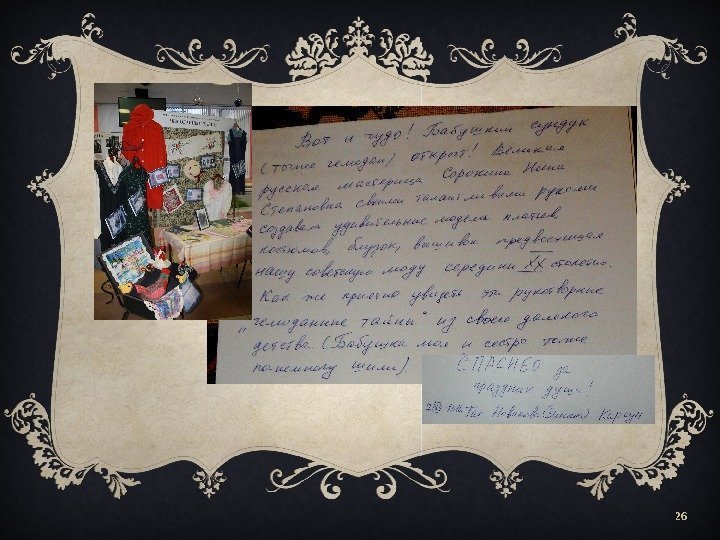 Вот и чудо! Бабушкин сундук
(точнее чемодан) открыт! Великая
русская мастерица Сорокина Нина
Степановна своими талантливыми руками
создавала удивительные модели платьев,
костюмов, блузок, вышивок предвосхищая
нашу советскую моду середины XX столетия.
Как же приятно увидеть эти рукотворные
"чемоданные тайны" из своего далекого
детства. (Бабушка моя и сестра тоже
понемногу шили)
СПАСИБО за
праздник души!
26